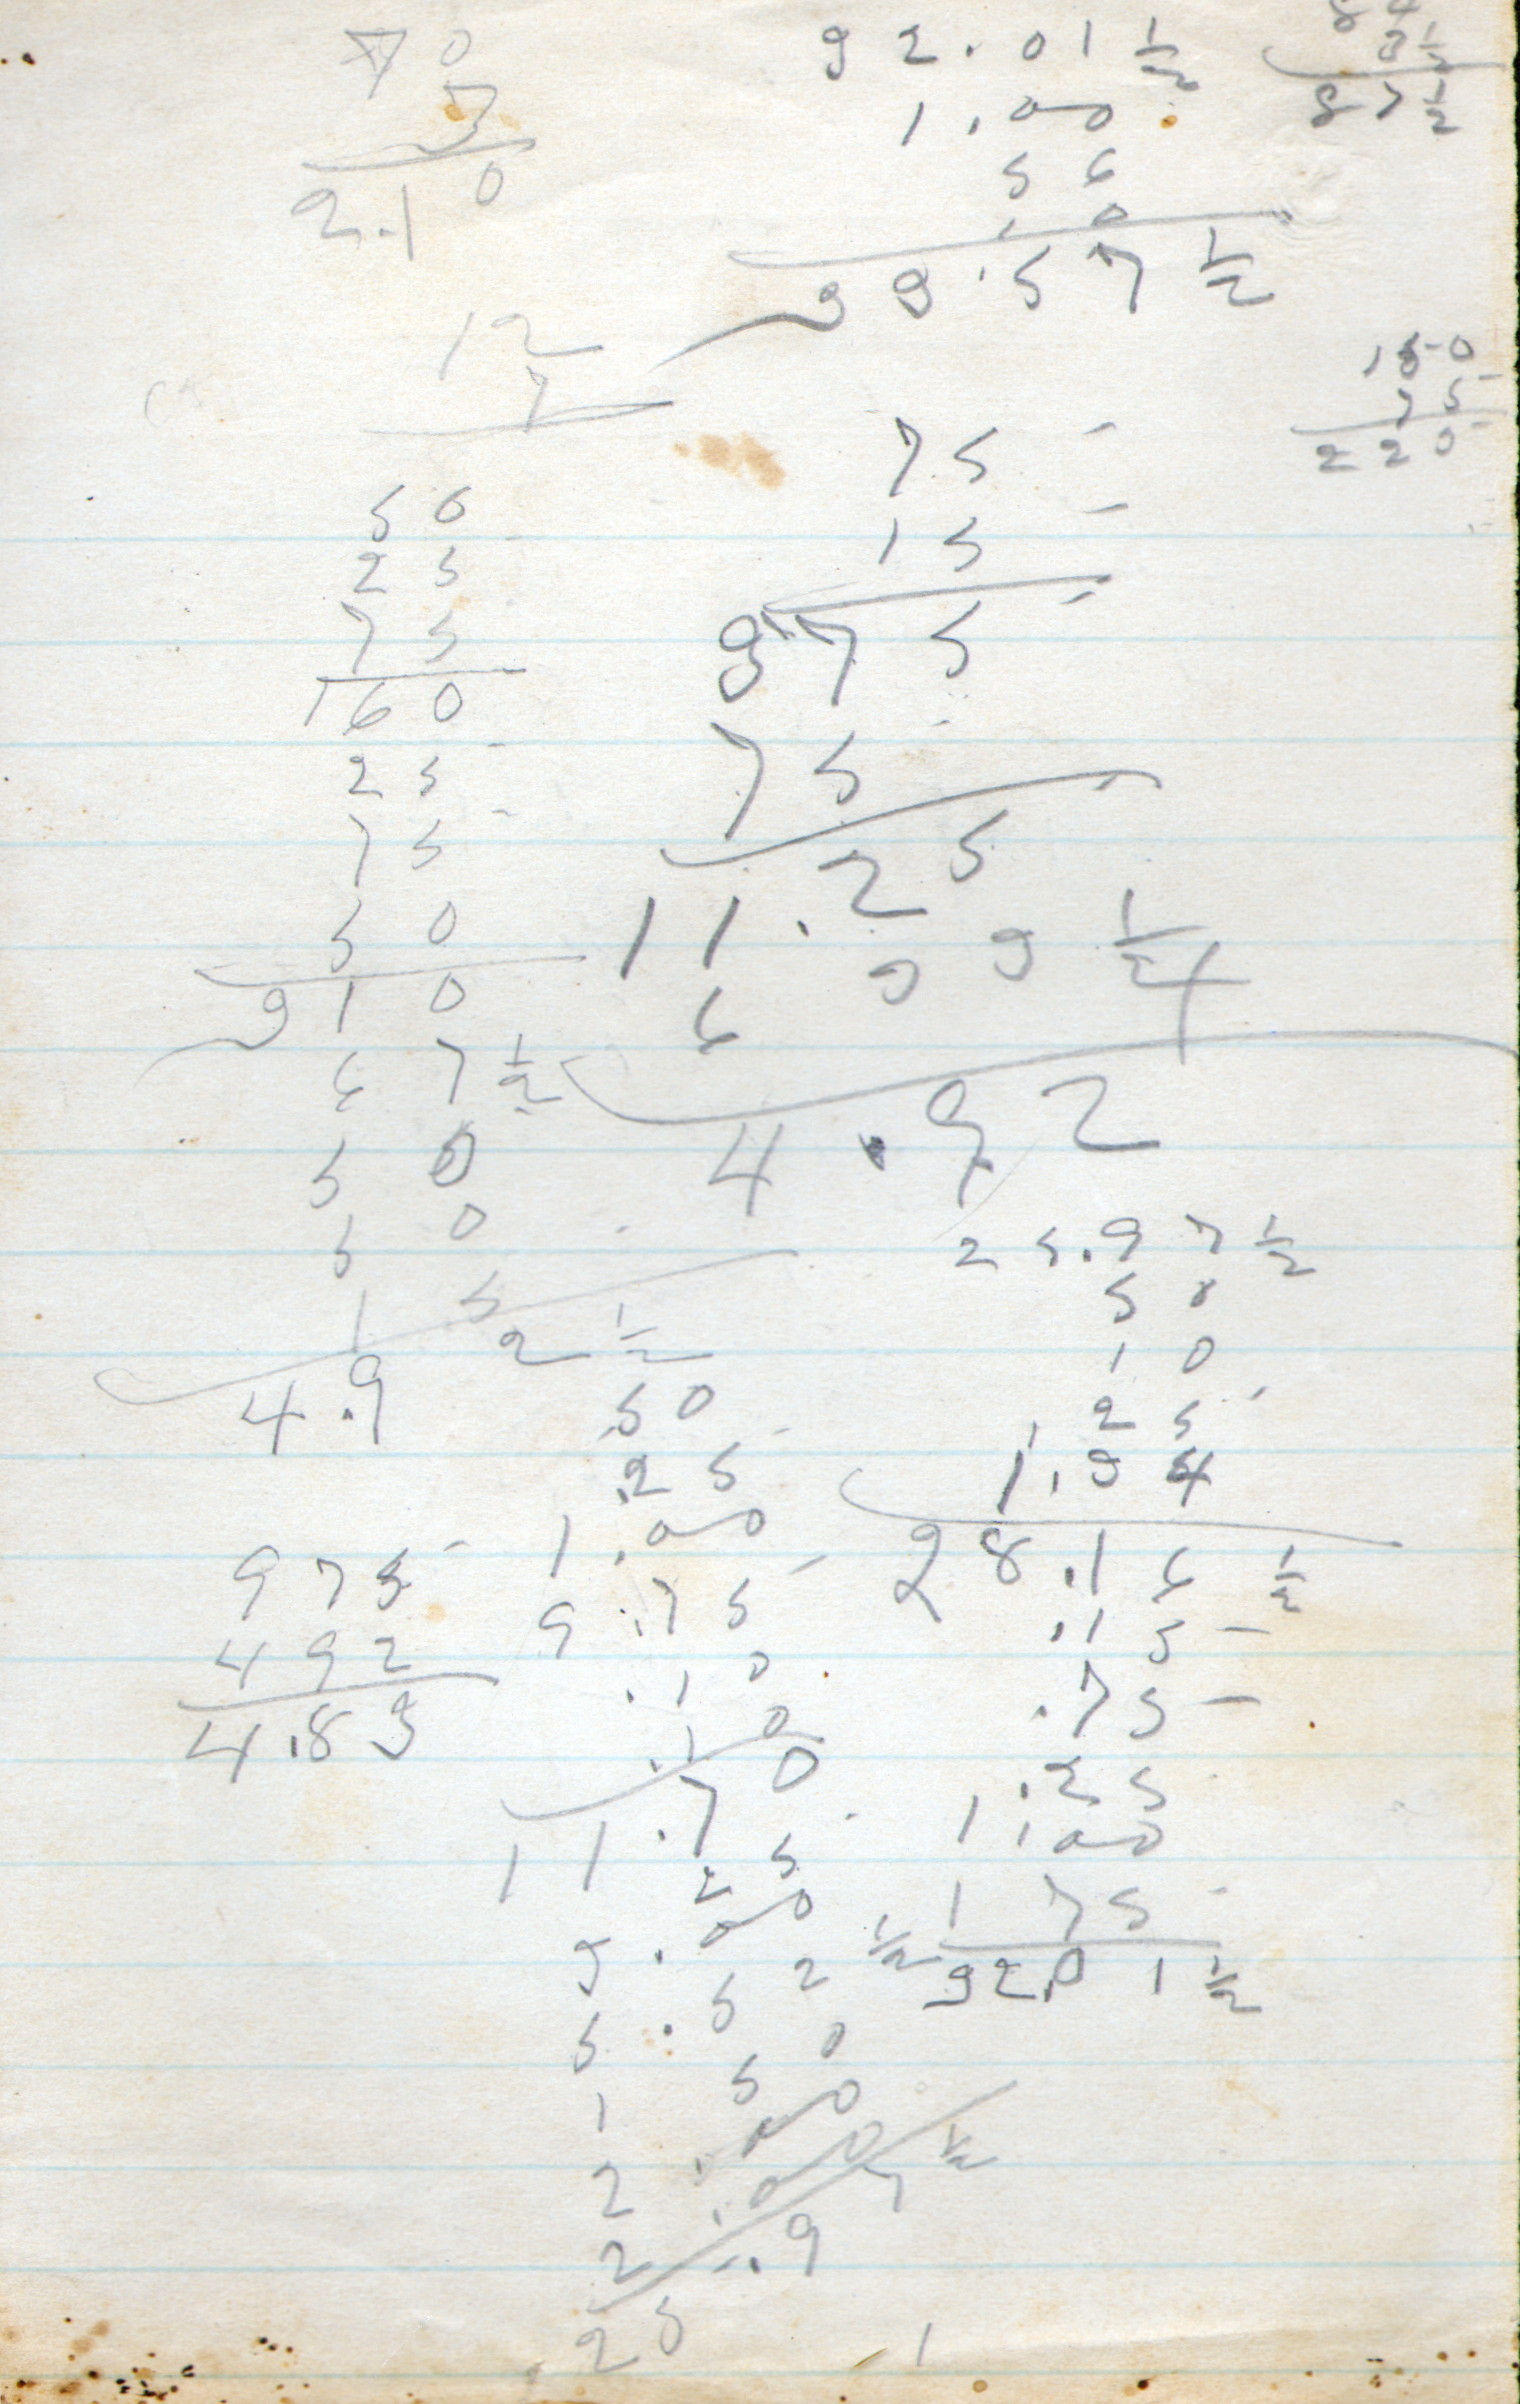 70
3
2.10
12
7
50
25
75
160
25
75
50
310
67 1/2
50
50
15
4.92 1/2
975
492
4.83
92.01 1/2
1.00
56
.0
93.57 1/2
75
15
975
75
11.25
6 33 1/4
4.92
50
.25
1.00
9.75
.10
.10
11.70
25
3.00
5.52 1/2
1 50
2.00
2.00
25.97 1/2
25.97 1/2
50
10
.25
1.34
28.16 1/2
.15
.75
.25
1.00
1 75
32.01 1/2
87 1/2
150
75
220
1